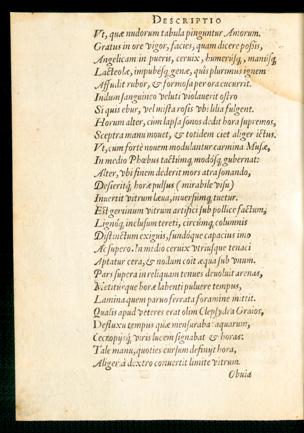 DESCRIPTIO
Vt, quæ nudorum tabula pinguntur Amorum.
Gratus in ore vigor, facies, quam dicere poßis,
Angelicam in pueris, ceruix, humeriq́, manúsq́,
Lacteolæ, impubésq́ genæ, quîs plurimus ignem
Affudit rubor, & formosa per ora cucurrit.
Indum sanguineo veluti violauerit ostro
Si quis ebur, vel mista rosis vbi lilia fulgent.
Horum alter, cùm lapsa sonos dedit hora supremos,
Sceptra manu mouet, & totidem ciet aliger ictus.
Vt, cum fortè nouem modulantur carmina Musæ,
In medio Phœbus tactúmq́, modósq́, gubernat:
Alter, vbi finem dederit mors atra sonando,
Desieritq́, horæ pulsus (mirabile visu)
Inuertit vitrum læua, inuersúmq́, tuetur.
Est geminum vitrum artifici sub pollice factum,
Lignóq́, inclusum tereti, circúmq́, columnis
Distinctum exiguis, fundóque capacius imo
Ac supero. In medio ceruix vtriusque tenaci
Aptatur cera, & nodum coit æqua sub vnum.
Pars supera in reliquam tenues deuoluit arenas,
Metitúrque horæ labenti puluere tempus,
Lamina quem paruo ferrata foramine mittit.
Qualis apud veteres erat olim Clepsydra Graios,
Defluxu tempus quæ mensuraba: aquarum,
Cecropijsq́, viris lucem signabat & horas:
Tale manu, quoties cursum definijt hora,
Aliger à dextro conuertit limite vitrum.
Obuia